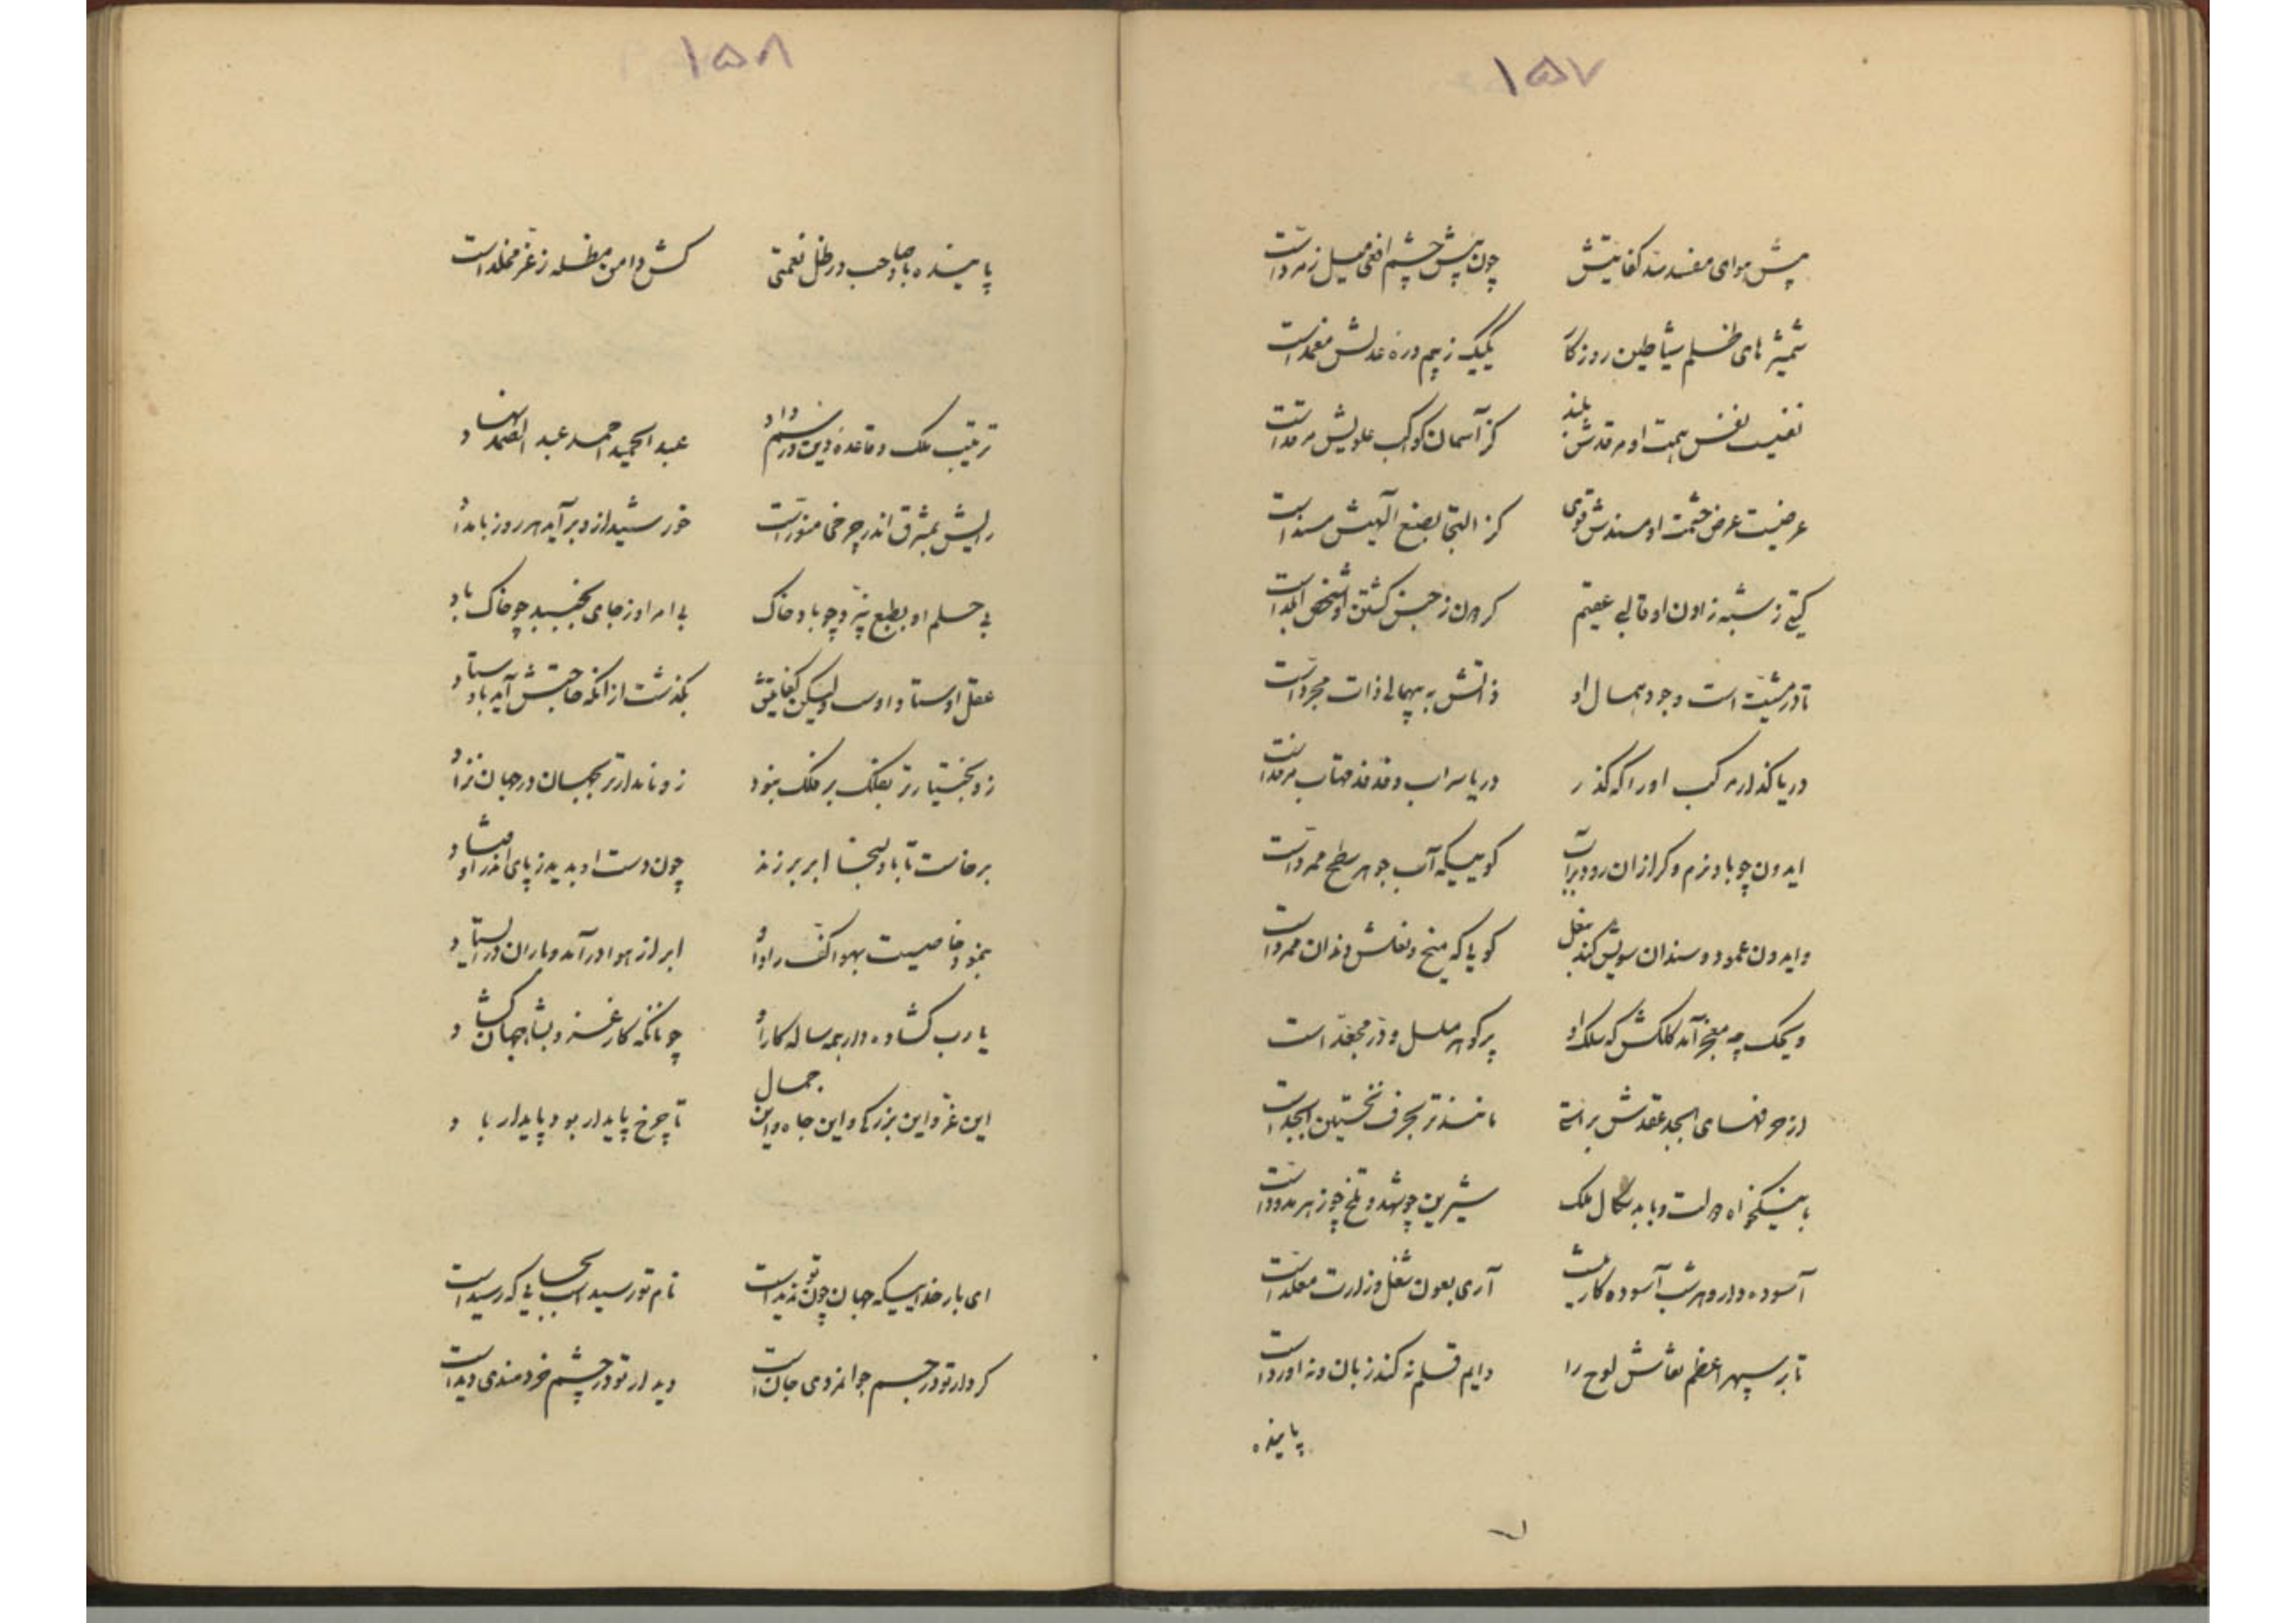 ۱۵۷
پیش هوای مفسده سد کفایتش چون پیش چشم افعی میل زمرد است
شمشیر های ظلم شیاطین روزکار یکیک ز بیم دره عدلش مغمد است
نفسیست نفس همت او مرقدش بلند کز آسمان کواکب علویش مرقد است
عرضیست عرض حشمت او مسندش قوی کز التجا بصنع آلهیش مسند است
کیتی ز شبه زادن او قالبی عقیم کردون ز جنس کشتن او شخص
تا در مشیت است وجود همال او ذاتش به بیهمالی ذات مجرد است
دریا کذار مرکب او را که کذر دریا سراب و فدفد مهتاب
ایدون چو باد نرم و کرازان رود بر آب کوییکه آب جوهر سطح ممرد است
وایدون عمود و سندان سویش کند بنعل کویا که میخ و نعلش دندان
ویحک چه معجز آمد کلکش که سلک او پر کوهر مسلسل و در مجعد است
از حرفهای ابجد عقدش براستی مانندتر بحرف نخستین ابجد است
با نیکخواه دولت و با بدسکال ملک شیرین چو شهد و تلخ چو زهر
آسوده دار و هر شب آسوده کار آری بعون شغل وزارت مقلد است
تا بر سپهر اعظم نقاش لوح را دایم قلم نه کند زبان و نه
پاینده
۱۵۸
پاینده باد صاحب در ظل نعمتی کش دامن مظله ز عز مخلد است
ترتیب ملک و قاعده دین و رسم داد عبد الحمید احمد عبد الصمد نهاد
رایش بمشرق اندر چرخی منور است خورشید از و بر آید هر روز بامداد
بی حلم او بطبع نپیرد چو باد خاک بی امر او ز جای نجنبد چو خاک باد
عقل اوستاد اوست ولیکن کفایتش بکذشت از آنکه حاجتش آید باوستاد
زو بختیارتر بفلک بر ملک نبود زو نامدارتر بجهان در جهان نزاد
برخاست تا بباد سخا ابر بر زند چون دست او بدید ز پای اندر اوفتاد
بنمود خاصیت بهوا کف راد او ابر از هوا در آمد و باران در ایستاد
یارب کشاده دار همه ساله کار او چونانکه کار عز و بشا جهان کشاد
این عز و این بزرکی و این جاه و این جمال تا چرخ پایدار بود پایدار باد
ای بار خداییکه جهان چون تو ندید است نام تو رسید است بجایی که رسید است
کردار تو در جسم جوانمردی جان است دیدار تو در چشم خردمندی دید است